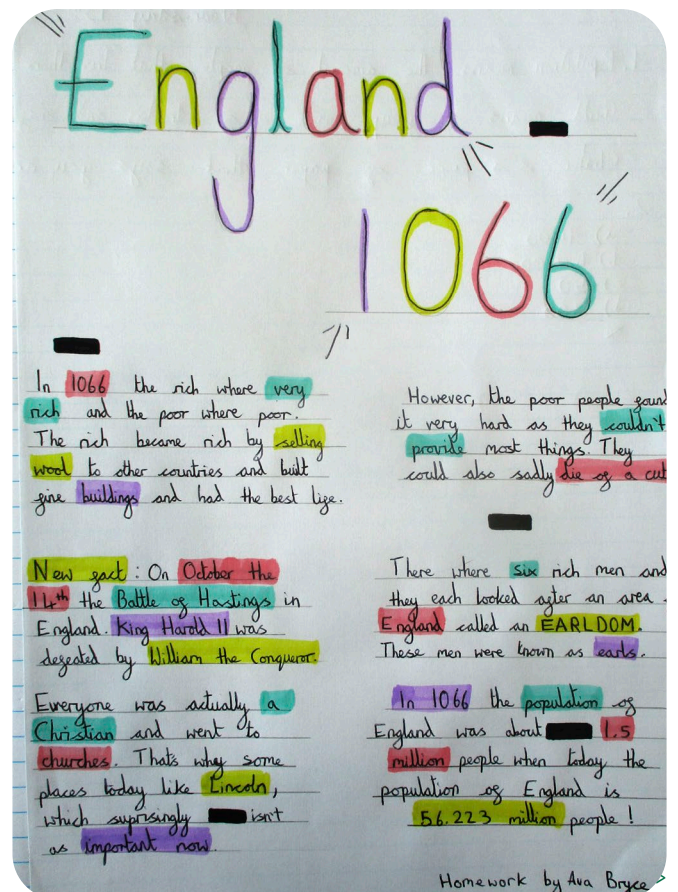 England
1066
In 1066 the rich where very
rich and the poor where poor.
The rich became rich by selling
wool to other countries and built
fine buildings and had the best life.
New fact : On October the
14th the Battle of Hastings in
England. King Harold II was
defeated by William the Conqueror.
Everyone was actually a
Christian and went to
churches. Thats why some
places today like Lincoln,
which suprisingly isn't
as important now.
However, the poor people found
it very hard as they couldn't
provide most things. They
could also sadly die of a cut
There where six rich men and
they each looked after an area
England called an EARLDOM.
These men were known as earls.
In 1066 the population of
England was about 1.5
million people when today the
population of England is
56.223 million people !
Homework by Ava Bryce